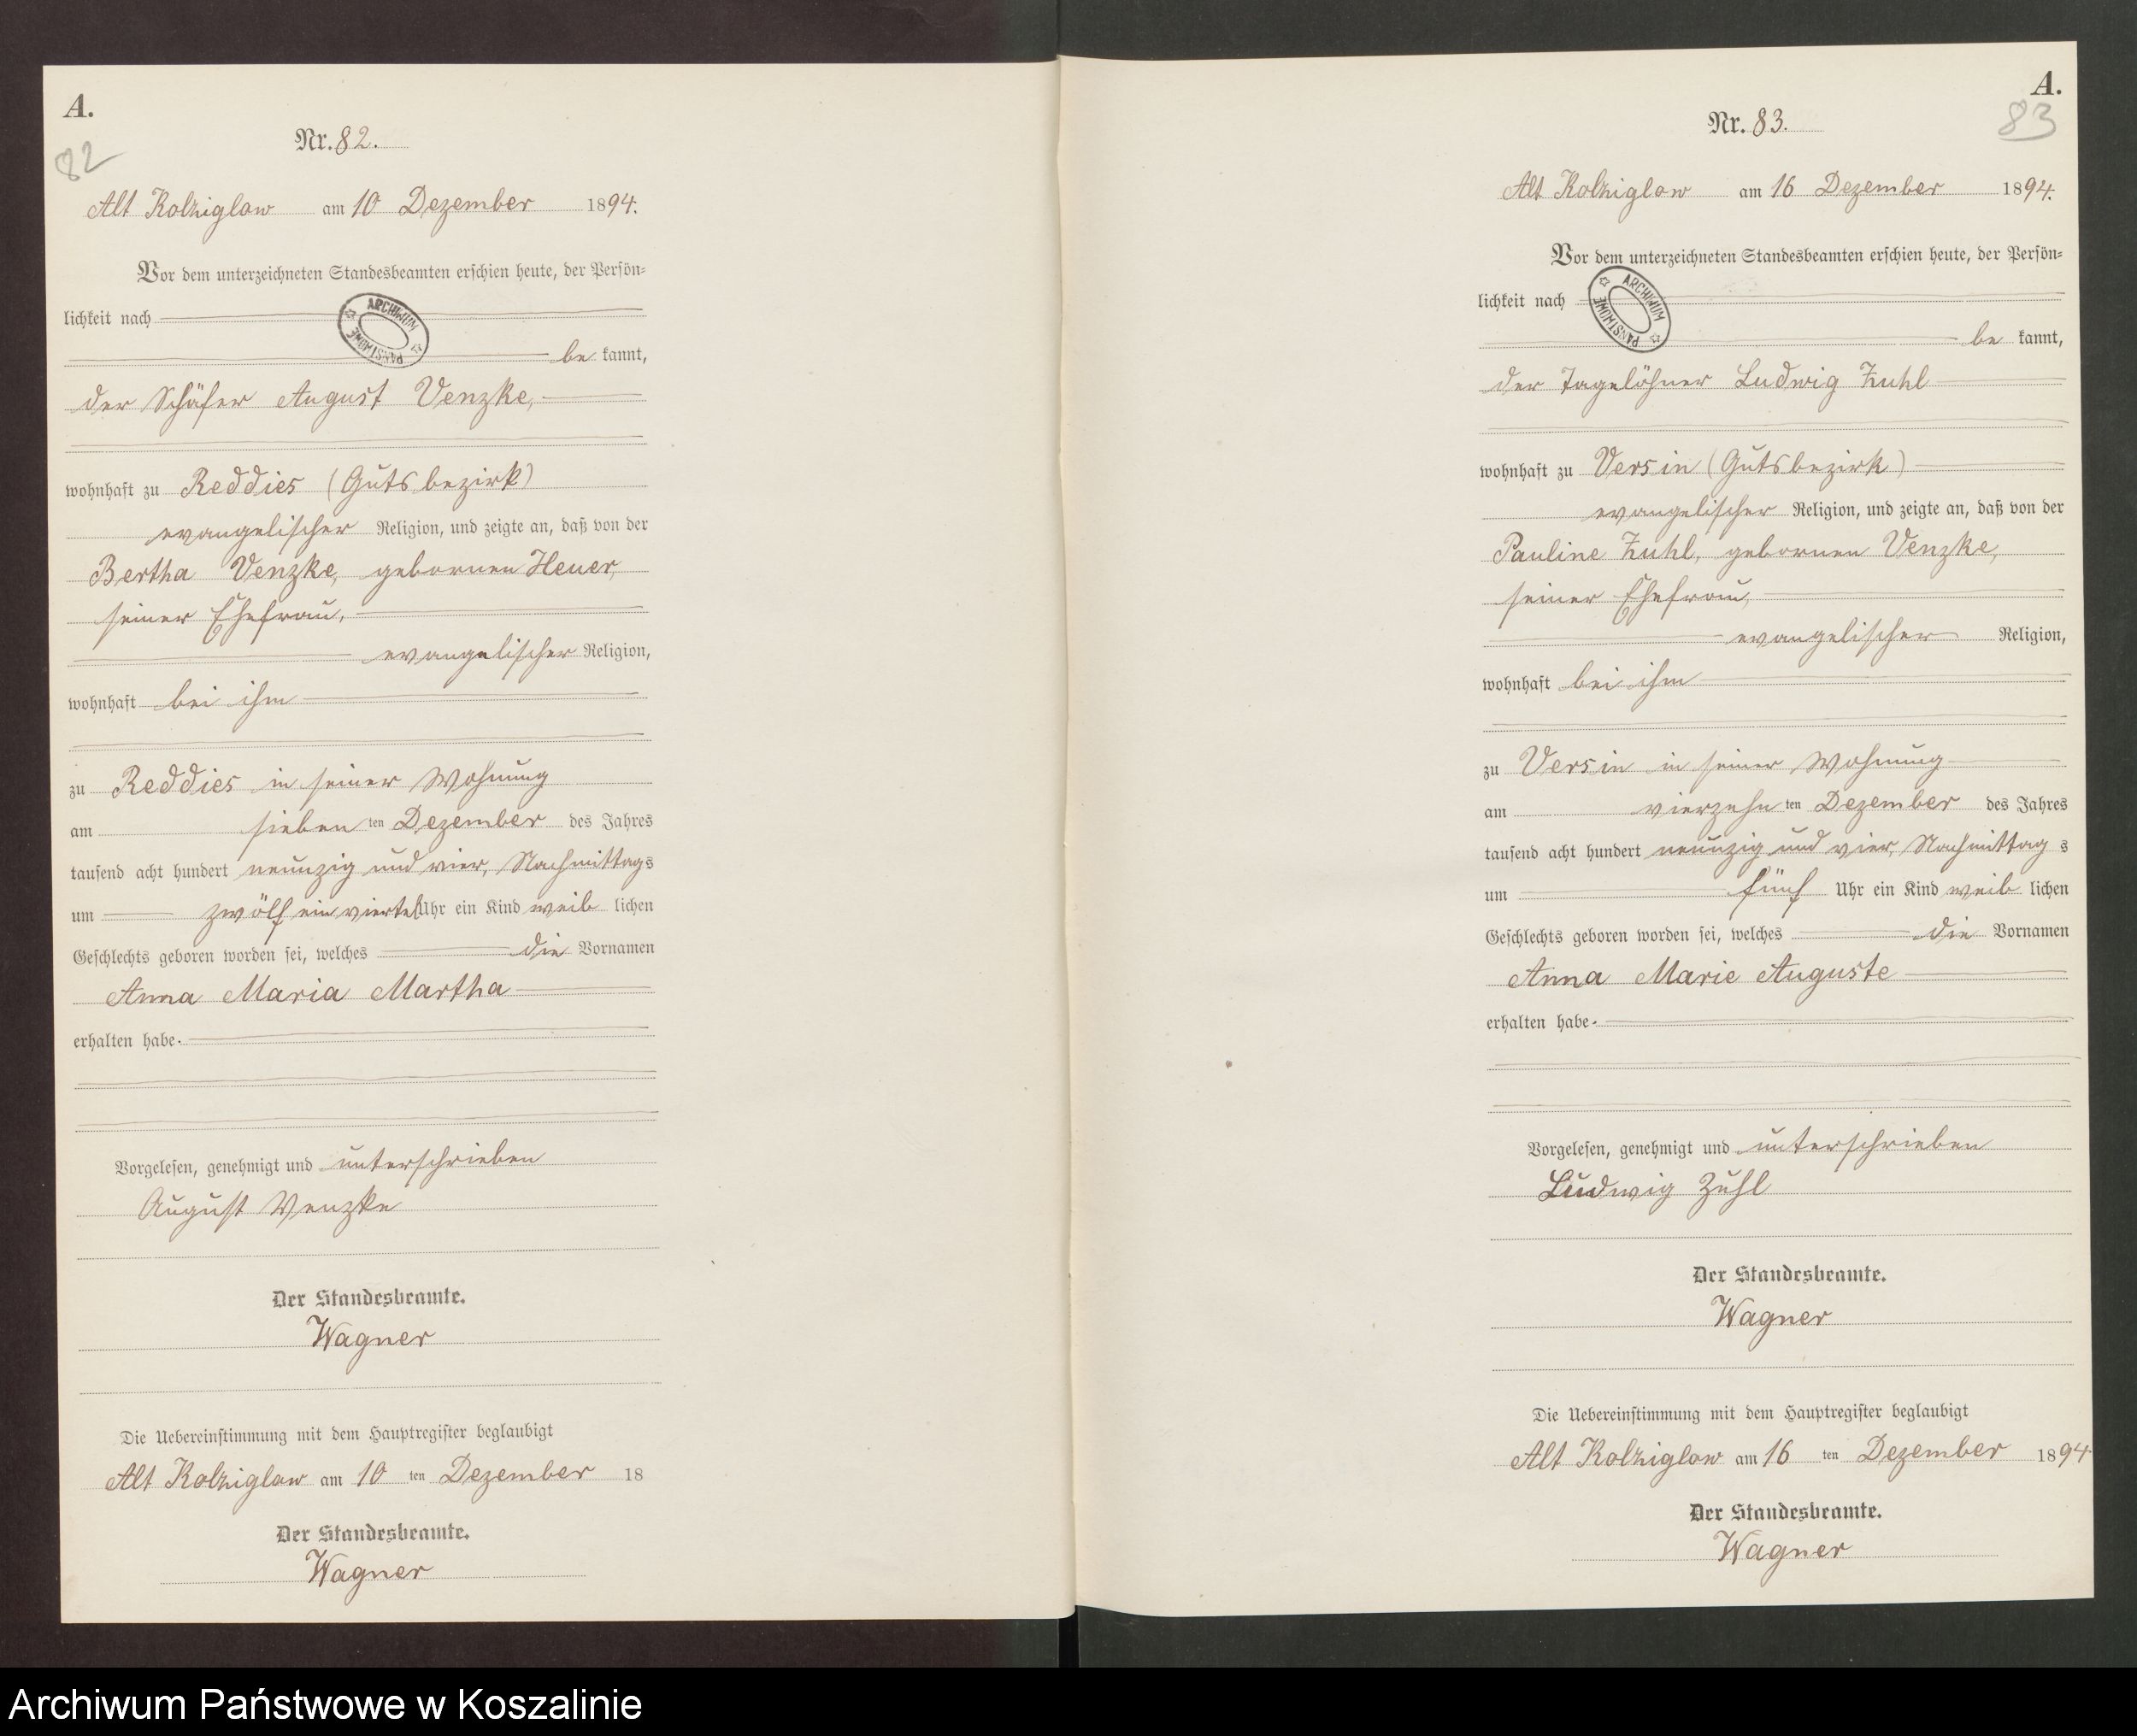 A.
82
Nr. 82.
Alt Kolziglow am 10 Dezember 1894.
Vor dem unterzeichneten Standesbeamten erschien heute, der Persön-
lichkeit nach
ARCHIWUM PAŃSTWOWE
be kannt,
der Schäfer August Venzke,
wohnhaft zu Reddies (Gutsbezirk)
evangelischer Religion, und zeigte an, daß von der
Bertha Venzke, gebornen Heuer,
seiner Ehefrau,
evangelischer Religion,
wohnhaft bei ihm
zu Reddies in seiner Wohnung
am sieben ten Dezember des Jahres
tausend acht hundert neunzig und vier, Nachmittags
um zwölf ein viertel Uhr ein Kind weib lichen
Geschlechts geboren worden sei, welches die Vornamen
Anna Maria Martha
erhalten habe.
Vorgelesen, genehmigt und unterschrieben
August Venzke
Der Standesbeamte.
Wagner
Die Uebereinstimmung mit dem Hauptregister beglaubigt
Alt Kolziglow am 10 ten Dezember 18
Der Standesbeamte.
Wagner
A.
83
Nr. 83.
Alt Kolziglow am 16 Dezember 1894.
Vor dem unterzeichneten Standesbeamten erschien heute, der Persön-
lichkeit nach
ARCHIWUM PAŃSTWOWE
be kannt,
der Tagelöhner Ludwig Zuhl
wohnhaft zu Versin (Gutsbezirk)
evangelischer Religion, und zeigte an, daß von der
Pauline Zuhl, gebornen Venzke,
seiner Ehefrau,
evangelischer Religion,
wohnhaft bei ihm
zu Versin in seiner Wohnung
am vierzehn ten Dezember des Jahres
tausend acht hundert neunzig und vier, Nachmittag s
um fünf Uhr ein Kind weib lichen
Geschlechts geboren worden sei, welches die Vornamen
Anna Marie Auguste
erhalten habe.
Vorgelesen, genehmigt und unterschrieben
Ludwig Zuhl
Der Standesbeamte.
Wagner
Die Uebereinstimmung mit dem Hauptregister beglaubigt
Alt Kolziglow am 16 ten Dezember 1894.
Der Standesbeamte.
Wagner
Archiwum Państwowe w Koszalinie